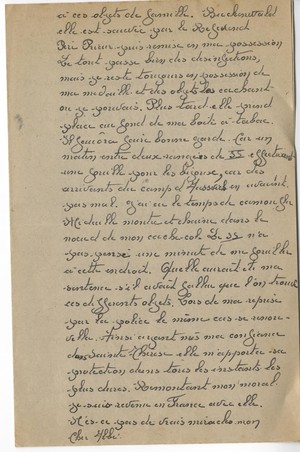 à ces objets de famille. Buchenwald
elle est sauvée par le Révérend
Père puis remise en ma possession
Le tout passe bien des désinfections,
mais je reste toujours en possession de
ma médaille et des objets les cachant
ou je pouvais. Plus tard elle prend
place au fond de ma boite à tabac.
Il faudra faire bonne garde. Car un
matin entre deux rangées de SS effectuent
une fouille pour les bijoux, car des
arrivants du camp d' en avaient
pas mal. J'ai le temps de camoufler
Médaille montre et chaine dans le
noeud de mon cache col. Le SS n'a
pas pensé une minute de me fouiller
à cette endroit. Quelle aurait été ma
sentence s'il avait fallu que l'on trouve
ces différents objets. Lors de ma reprise
par la police le même cas se renou-
velle. Ainsi ayant mis ma confiance
dans Sainte Thérèse elle m'apporte sa
protection dans tous les instants les
plus durs. Remontant mon moral
je suis revenu en France avec elle.
N'es-ce pas de vrais miracles mon
Cher Abbé.